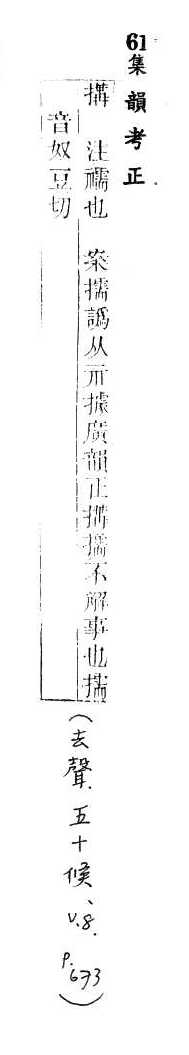 61集韻考正
搆 注襦也 案擩譌从需據廣韻正搆擩不解事也擩
音奴豆切
(去聲、五十候、v.8. p.673)